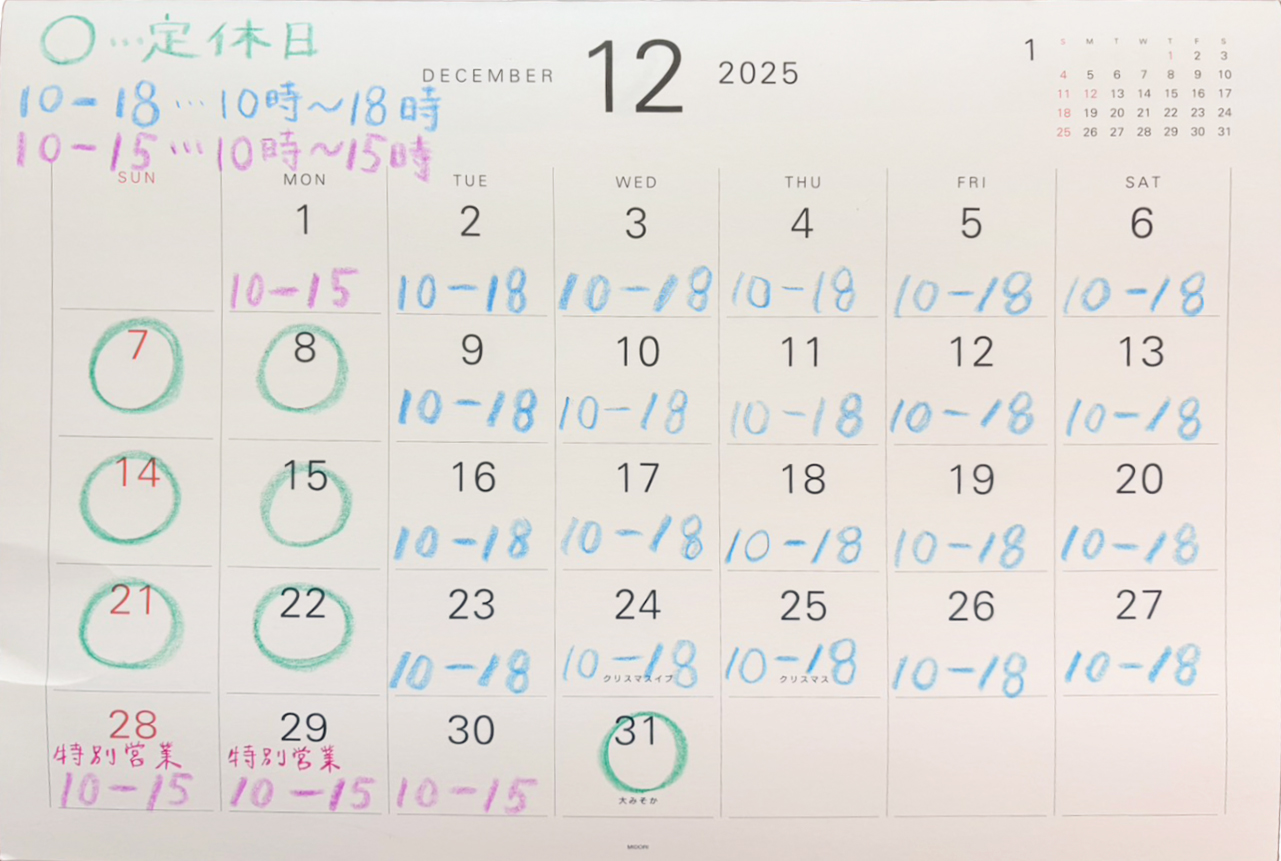 ○…定休日
10-18…10時~18時
10-15…10時~15時
DECEMBER 12 2025
1
S M T W T F S
1 2 3
4 5 6 7 8 9 10
11 12 13 14 15 16 17
18 19 20 21 22 23 24
25 26 27 28 29 30 31
SUN MON TUE WED THU FRI SAT
1 2 3 4 5 6
10-15 10-18 10-18 10-18 10-18 10-18
7 8 9 10 11 12 13
10-18 10-18 10-18 10-18 10-18
14 15 16 17 18 19 20
10-18 10-18 10-18 10-18 10-18
21 22 23 24 25 26 27
10-18 10-18 10-18 10-18 10-18
クリスマスイブ クリスマス
28 29 30 31
特別営業 特別営業
10-15 10-15 10-15
大みそか
MIDORI